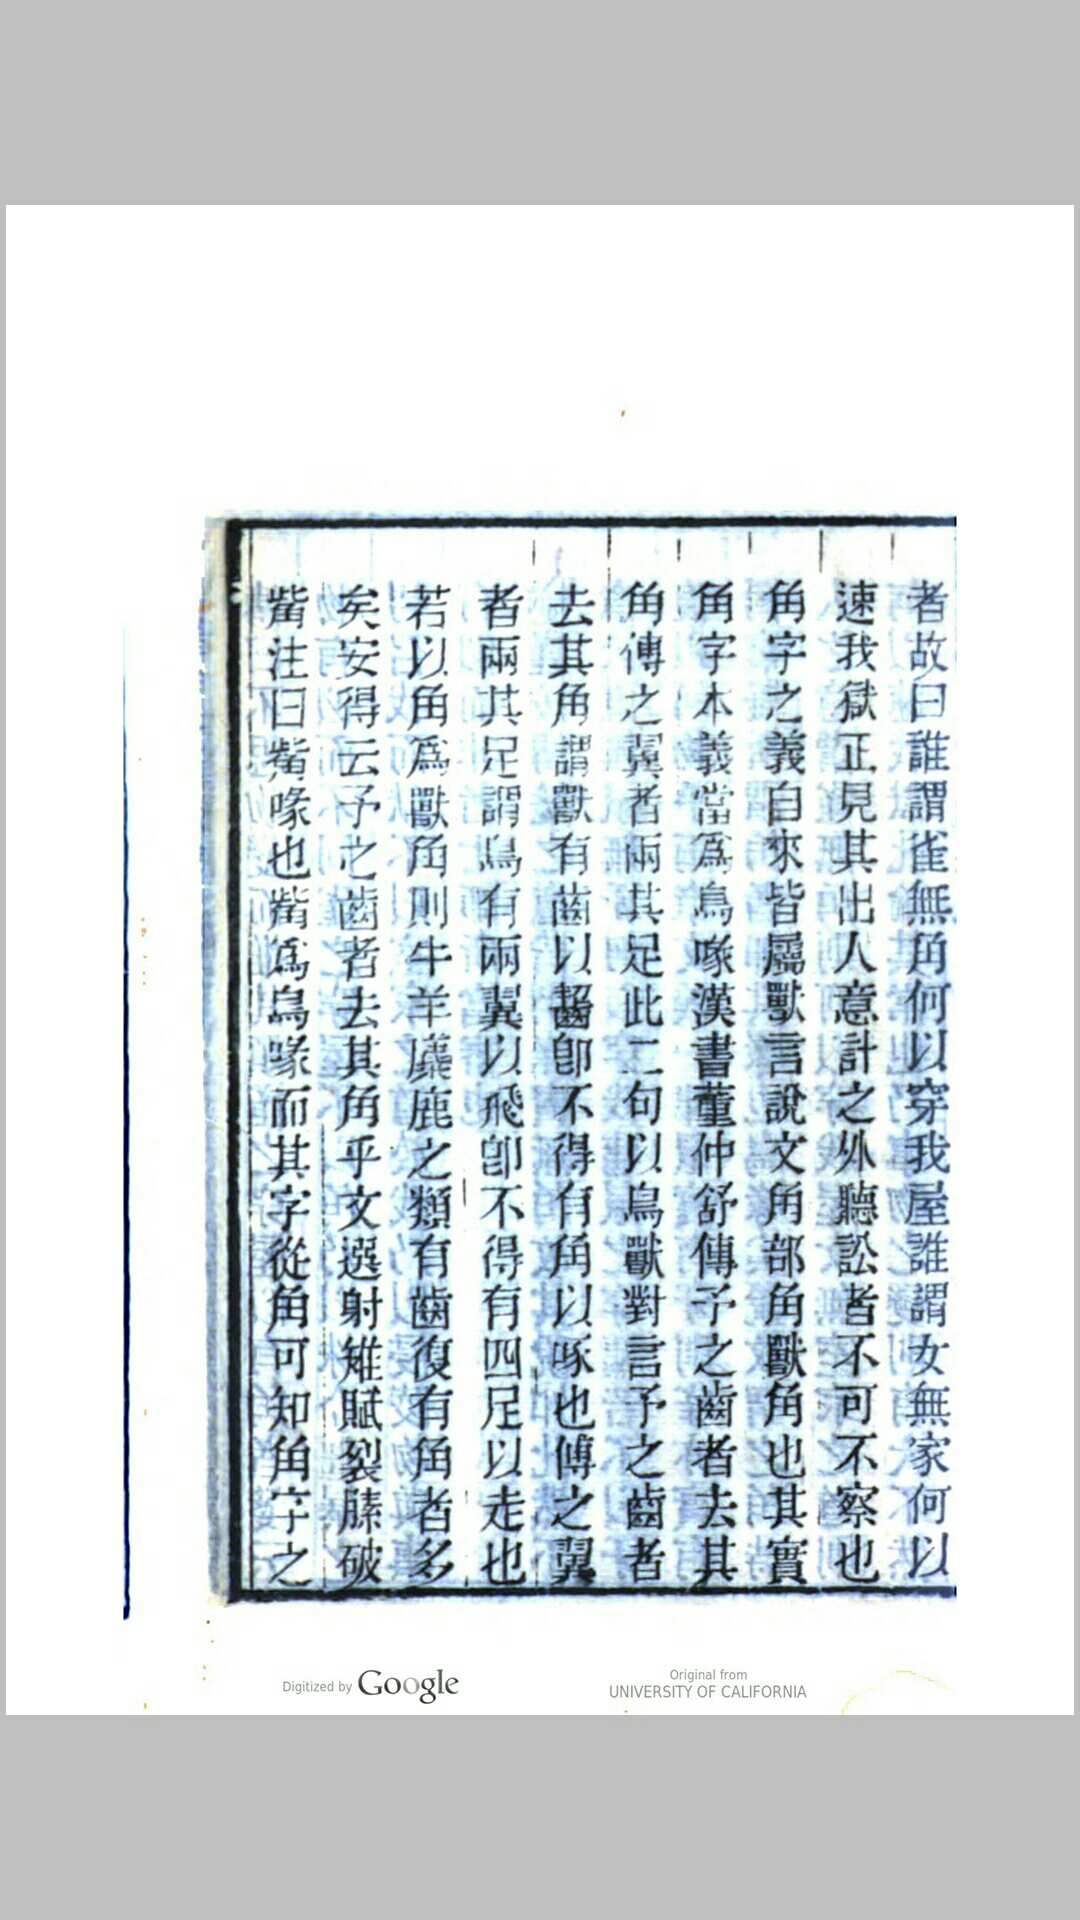 者故曰誰謂雀無角何以穿我屋誰謂女無家何以
速我獄正見其出人意計之外聽訟者不可不察也
角字之義自來皆屬獸言說文角部角獸角也其實
角字本義當爲鳥喙漢書董仲舒傳予之齒者去其
角傅之翼者兩其足此二句以鳥獸對言予之齒者
去其角謂獸有齒以齧卽不得有角以啄也傅之翼
者兩其足謂鳥有兩翼以飛卽不得有四足以走也
若以角爲獸角則牛羊麋鹿之類有齒復有角者多
矣安得云予之齒者去其角乎文選射雉賦裂膆破
觜注曰觜喙也觜爲鳥喙而其字從角可知角字之
Digitized by Google
Original from
UNIVERSITY OF CALIFORNIA